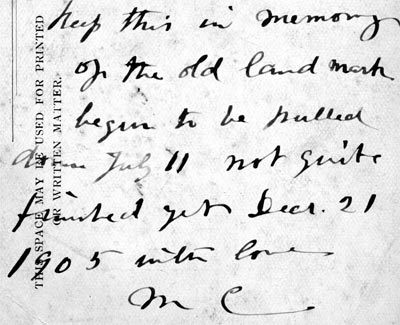 Keep this in memory
of the old land mark
begun to be pulled
down July 11 not quite
finished yet Decr. 21
1905 with love
M C
THIS SPACE MAY BE USED FOR PRINTED
OR WRITTEN MATTER.